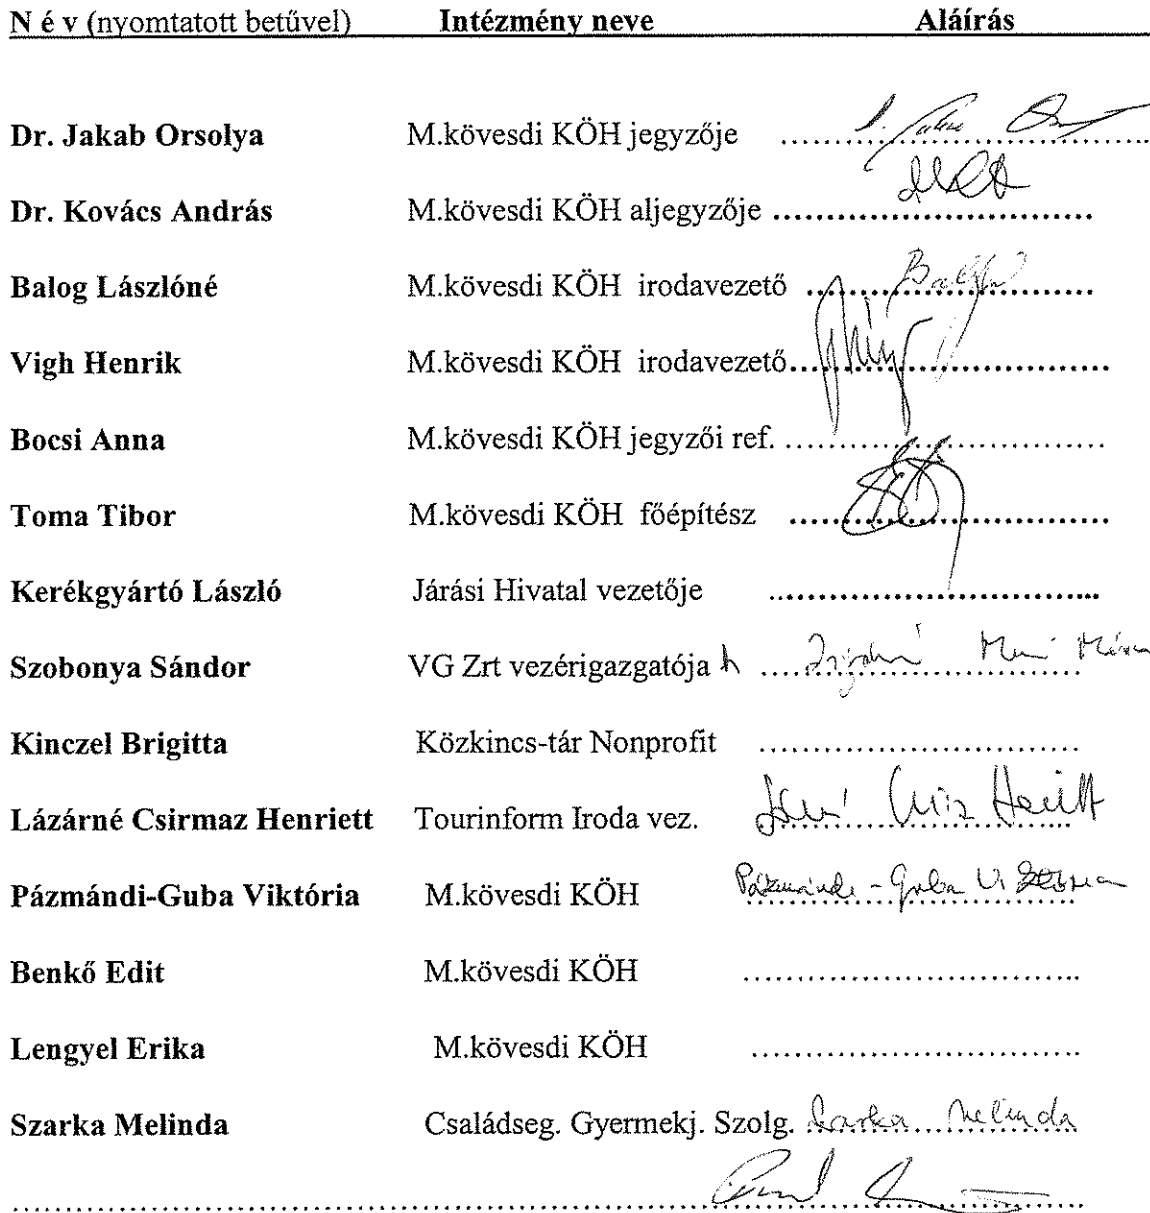 N é v (nyomtatott betűvel) Intézmény neve Aláírás
Dr. Jakab Orsolya M.kövesdi KÖH jegyzője ....................................
Dr. Kovács András M.kövesdi KÖH aljegyzője ..............................
Balog Lászlóné M.kövesdi KÖH irodavezető ...........................
Vigh Henrik M.kövesdi KÖH irodavezető..............................
Bocsi Anna M.kövesdi KÖH jegyzői ref. ..............................
Toma Tibor M.kövesdi KÖH főépítész ..............................
Kerékgyártó László Járási Hivatal vezetője ..............................
Szobonya Sándor VG Zrt vezérigazgatója h ..............................
Kinczel Brigitta Közkincs-tár Nonprofit ..............................
Lázárné Csirmaz Henriett Tourinform Iroda vez. ..............................
Pázmándi-Guba Viktória M.kövesdi KÖH Pázmándi - Guba Viktória
Benkő Edit M.kövesdi KÖH ..............................
Lengyel Erika M.kövesdi KÖH ..............................
Szarka Melinda Családseg. Gyermekj. Szolg. Szarka Melinda